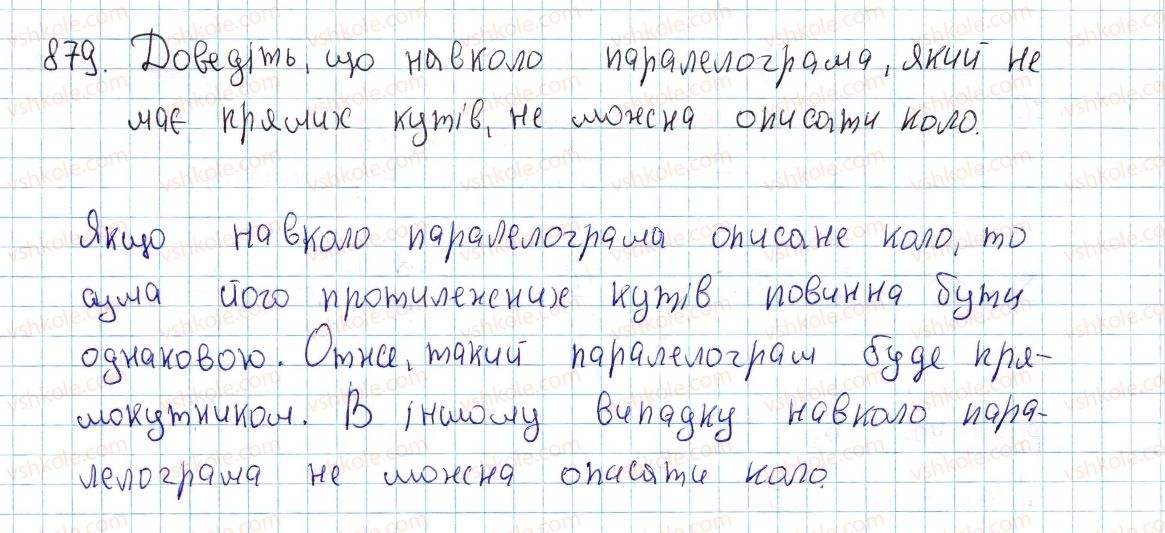 879. Доведіть, що навколо паралелограма, який не
має прямих кутів, не можна описати коло.
Якщо навколо паралелограма описане коло, то
сума його протилежних кутів повинна бути
однаковою. Отже, такий паралелограм буде пря-
мокутником. В іншому випадку навколо пара-
лелограма не можна описати коло.